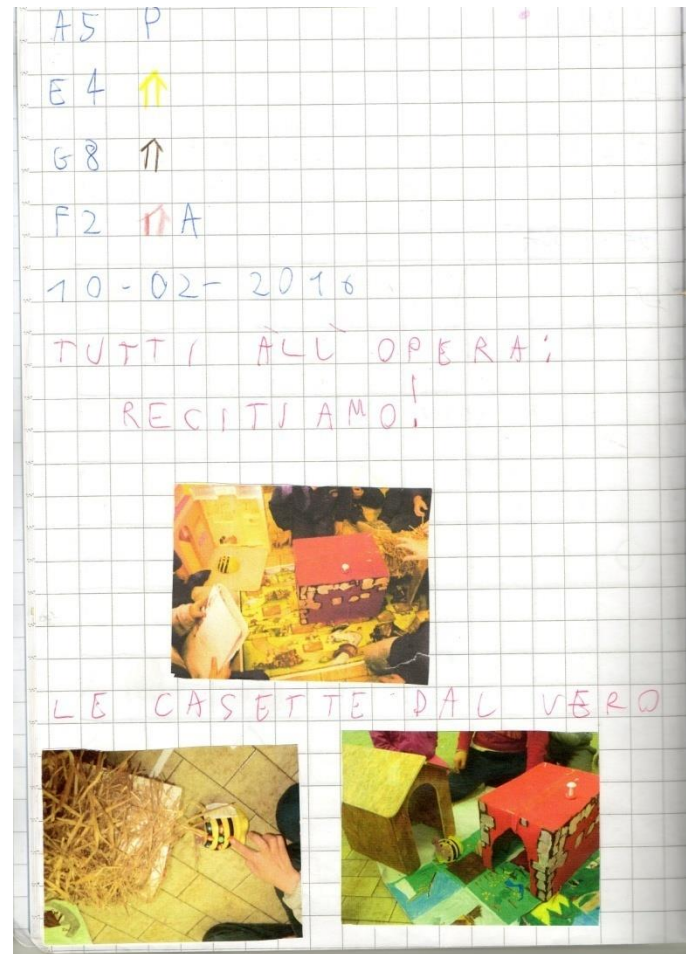 A5 P
E4 ⇑
G8 ⇑
F2 ⇑ A
10-02-2016
TUTTI ALL' OPERA:
RECITIAMO!
LE CASETTE DAL VERO